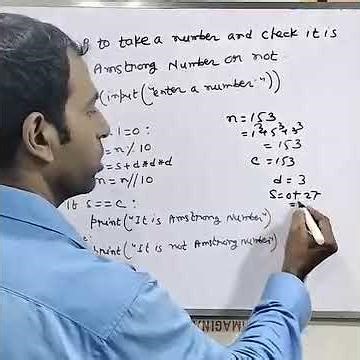 to take a number and check it is
Amstrong Number or not.
(input("enter a number"))
n = 153
= 1³+5³+3³
= 153
c = 153
!=0:
= n % 10
= s+d*d*d
n = n//10
d = 3
s = 0+27
=
if s == c:
print("It is Amstrong Number")
print("It is not Amstrong Number")